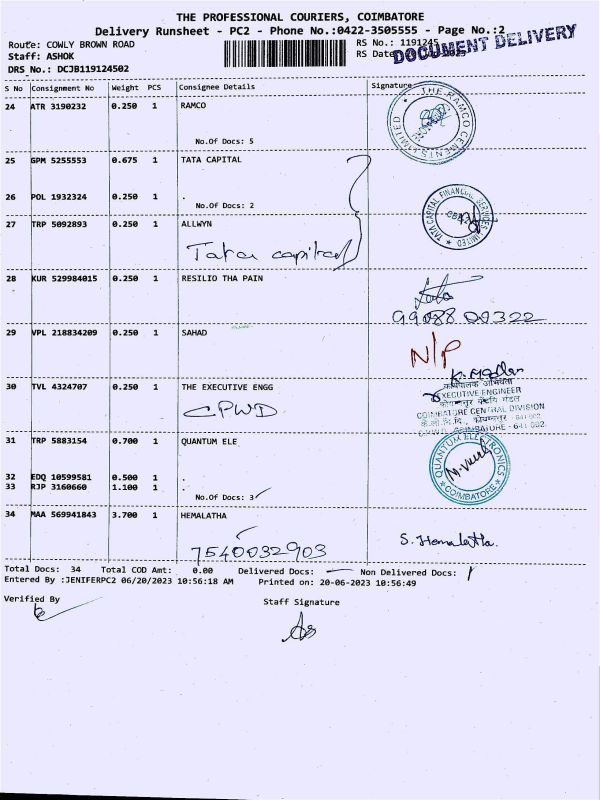 THE PROFESSIONAL COURIERS, COIMBATORE
Delivery Runsheet - PC2 - Phone No.:0422-3505555 - Page No.:2
DOCUMENT DELIVERY
Route: COWLY BROWN ROAD
RS No.: 1191245
Staff: ASHOK
RS Date
DRS No.: DCJB119124502
S No Consignment No Weight PCS Consignee Details Signature
24 ATR 3190232 0.250 1 RAMCO
No.Of Docs: 5
THE RAMCO CEMENTS LIMITED
25 GPM 5255553 0.675 1 TATA CAPITAL
26 POL 1932324 0.250 1 .
No.Of Docs: 2
TATA CAPITAL FINANCIAL SERVICES LIMITED
27 TRP 5092893 0.250 1 ALLWYN
Tata capital
28 KUR 529984015 0.250 1 RESILIO THA PAIN
29 VPL 218834209 0.250 1 SAHAD
N/P
30 TVL 4324707 0.250 1 THE EXECUTIVE ENGG
CPWD
कार्यपालक अभियंता
EXECUTIVE ENGINEER
COIMBATORE CENTRAL DIVISION
31 TRP 5883154 0.700 1 QUANTUM ELE
QUANTUM ELECTRONICS
COIMBATORE
32 EDQ 10599581 0.500 1 .
33 RJP 3160660 1.100 1 .
No.Of Docs: 3
34 MAA 569941843 3.700 1 HEMALATHA
7540032903
S. Hemalatha.
Total Docs: 34 Total COD Amt: 0.00 Delivered Docs: Non Delivered Docs: 1
Entered By :JENIFERPC2 06/20/2023 10:56:18 AM Printed on: 20-06-2023 10:56:49
Verified By
Staff Signature